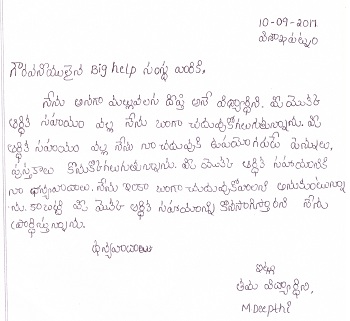 10-09-2017
విశాఖపట్నం
గౌరవనీయులైన Big help సంస్థ వారికి,
నేను అనగా మల్లువలస దీప్తి అనే విద్యార్థిని. మీ యొక్క
ఆర్థిక సహాయం వల్ల నేను బాగా చదువుకోగలుగుతున్నాను. మీ
ఆర్థిక సహాయం వల్ల నేను నా చదువుకి ఉపయోగపడే పెన్నులు,
పుస్తకాలు కొనుకోగలుగుతున్నాను. మీ యొక్క ఆర్థిక సహాయానికి
నా ధన్యవాదాలు. నేను ఇంకా బాగా చదువుకోవాలని అనుకుంటున్నా
ను. కాబట్టి మీ యొక్క ఆర్థిక సహాయాన్ని కొనసాగిస్తారని నేను
ప్రార్థిస్తున్నాను.
ధన్యవాదాలు
ఇట్లు
తమ విద్యార్థిని,
M Deepthi